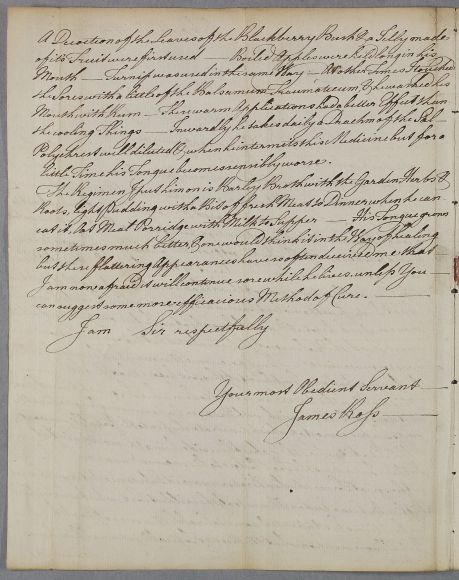 A Decoction of the Leaves of the Blackberry Bush & a Jelly made
of its Fruit were first used — Boiled Apples were held long in his
Mouth — Turnip was used in the same Way — At other Times I touched
the Sores with a little of the Balsamum Traumaticum, & he washed his
Mouth with Rum — These warm Applications had a better Effect than
the cooling Things — Inwardly he takes daily a Drachm of the Sal
Polychrest well diluted &, when he intermits this Medicine but for a
little Time his Tongue becomes sensibly worse.
The Regimen I put him on is Barly Broth with the Garden Herbs &
Roots, light Pudding with a Bit of fresh Meat to Dinner when he can
eat it, Oat Meal Porridge with Milk to Supper — His Tongue grows
sometimes much better & one would think it in the Way of healing
but these flattering Appearances have so often deceived me that
I am now afraid it will continue sore while he lives, unless You —
can suggest some more efficacious Method of Cure. —
I am Sir respectfully
Your most Obedient Servant —
James Ross —